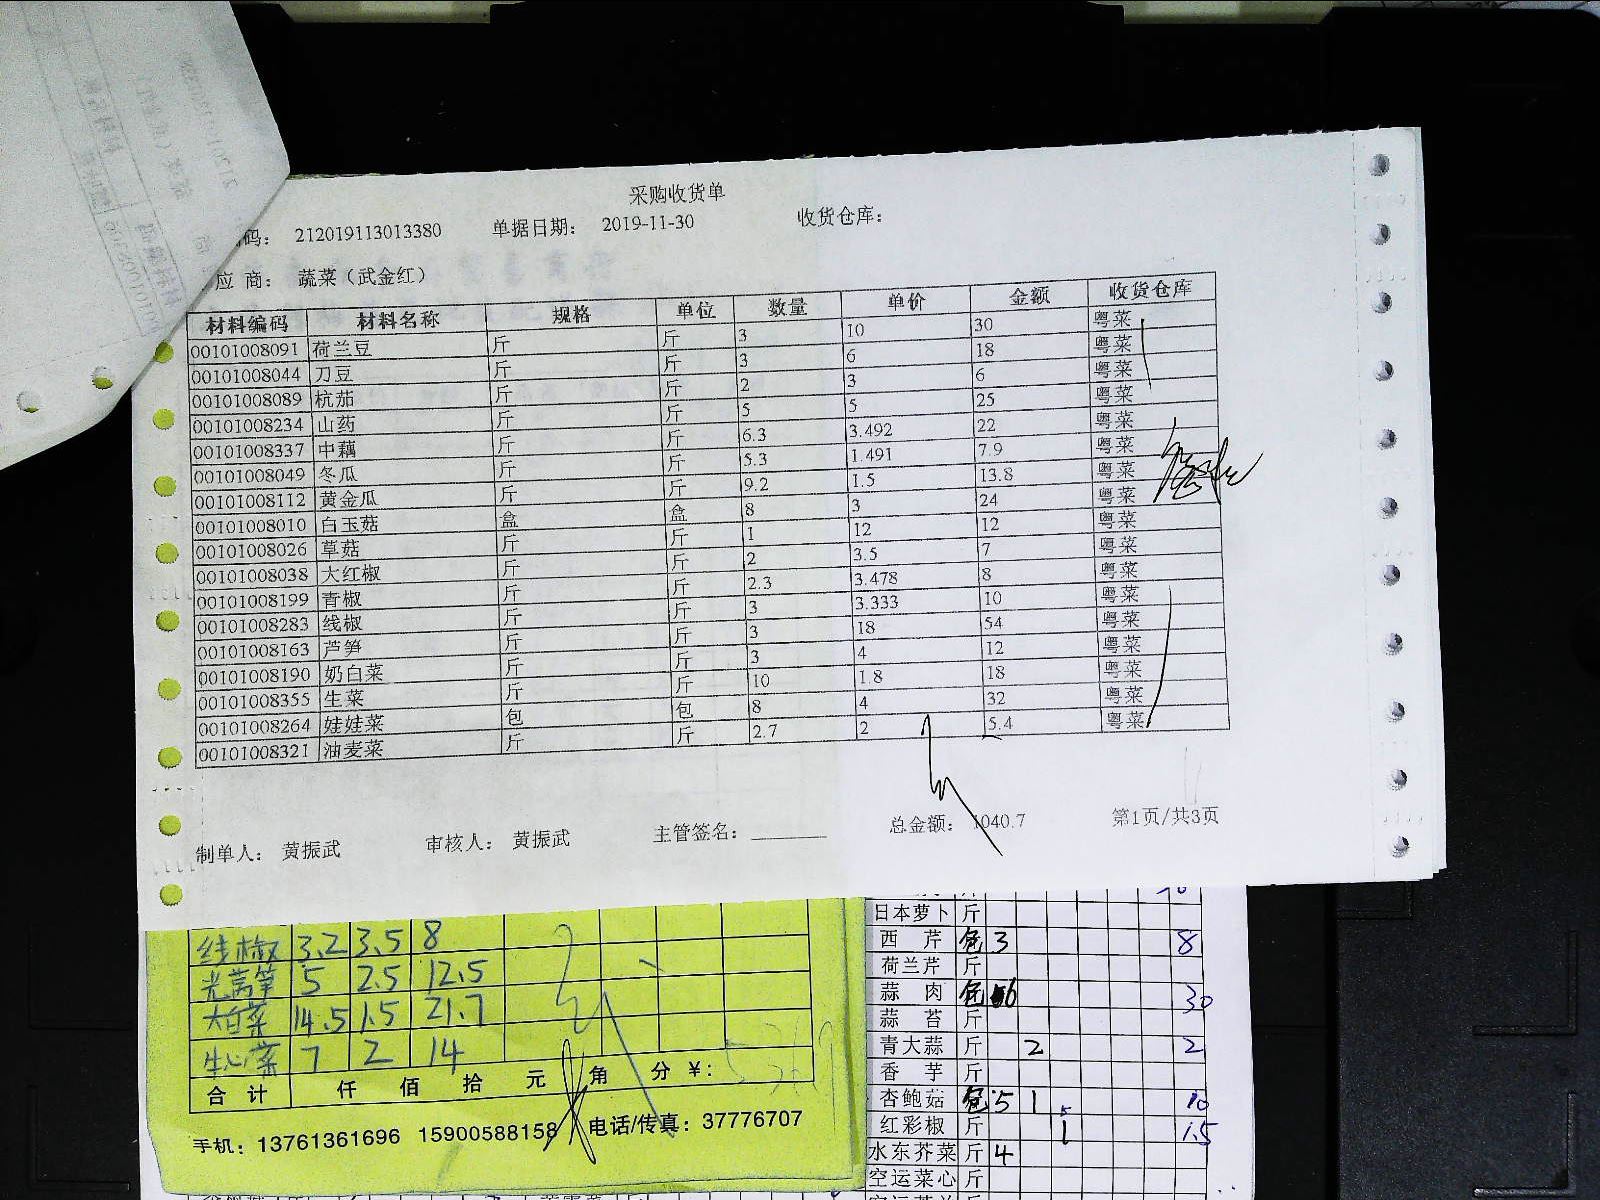 采购收货单
码： 212019113013380 单据日期： 2019-11-30 收货仓库：
应 商： 蔬菜（武金红）
材料编码 材料名称 规格 单位 数量 单价 金额 收货仓库
00101008091 荷兰豆 斤 斤 3 10 30 粤菜
00101008044 刀豆 斤 斤 3 6 18 粤菜
00101008089 杭茄 斤 斤 2 3 6 粤菜
00101008234 山药 斤 斤 5 5 25 粤菜
00101008337 中藕 斤 斤 6.3 3.492 22 粤菜
00101008049 冬瓜 斤 斤 5.3 1.491 7.9 粤菜
00101008112 黄金瓜 斤 斤 9.2 1.5 13.8 粤菜
00101008010 白玉菇 盒 盒 8 3 24 粤菜
00101008026 草菇 斤 斤 1 12 12 粤菜
00101008038 大红椒 斤 斤 2 3.5 7 粤菜
00101008199 青椒 斤 斤 2.3 3.478 8 粤菜
00101008283 线椒 斤 斤 3 3.333 10 粤菜
00101008163 芦笋 斤 斤 3 18 54 粤菜
00101008190 奶白菜 斤 斤 3 4 12 粤菜
00101008355 生菜 斤 斤 10 1.8 18 粤菜
00101008264 娃娃菜 包 包 8 4 32 粤菜
00101008321 油麦菜 斤 斤 2.7 2 5.4 粤菜
制单人： 黄振武 审核人： 黄振武 主管签名： 总金额： 1040.7 第1页/共3页
线椒 3.2 3.5 8
光莴笋 5 2.5 12.5
大白菜 14.5 1.5 21.7
牛心菜 7 2 14
合 计 仟 佰 拾 元 角 分 ￥：
手机：13761361696 15900588158 电话/传真：37776707
日本萝卜 斤
西 芹 包 3 8
荷兰芹 斤
蒜 肉 包 6 30
蒜 苔 斤
青大蒜 斤 2 2
香 芋 斤
杏鲍菇 包 5 1 10
红彩椒 斤 1 1.5
水东芥菜 斤 4
空运菜心 斤